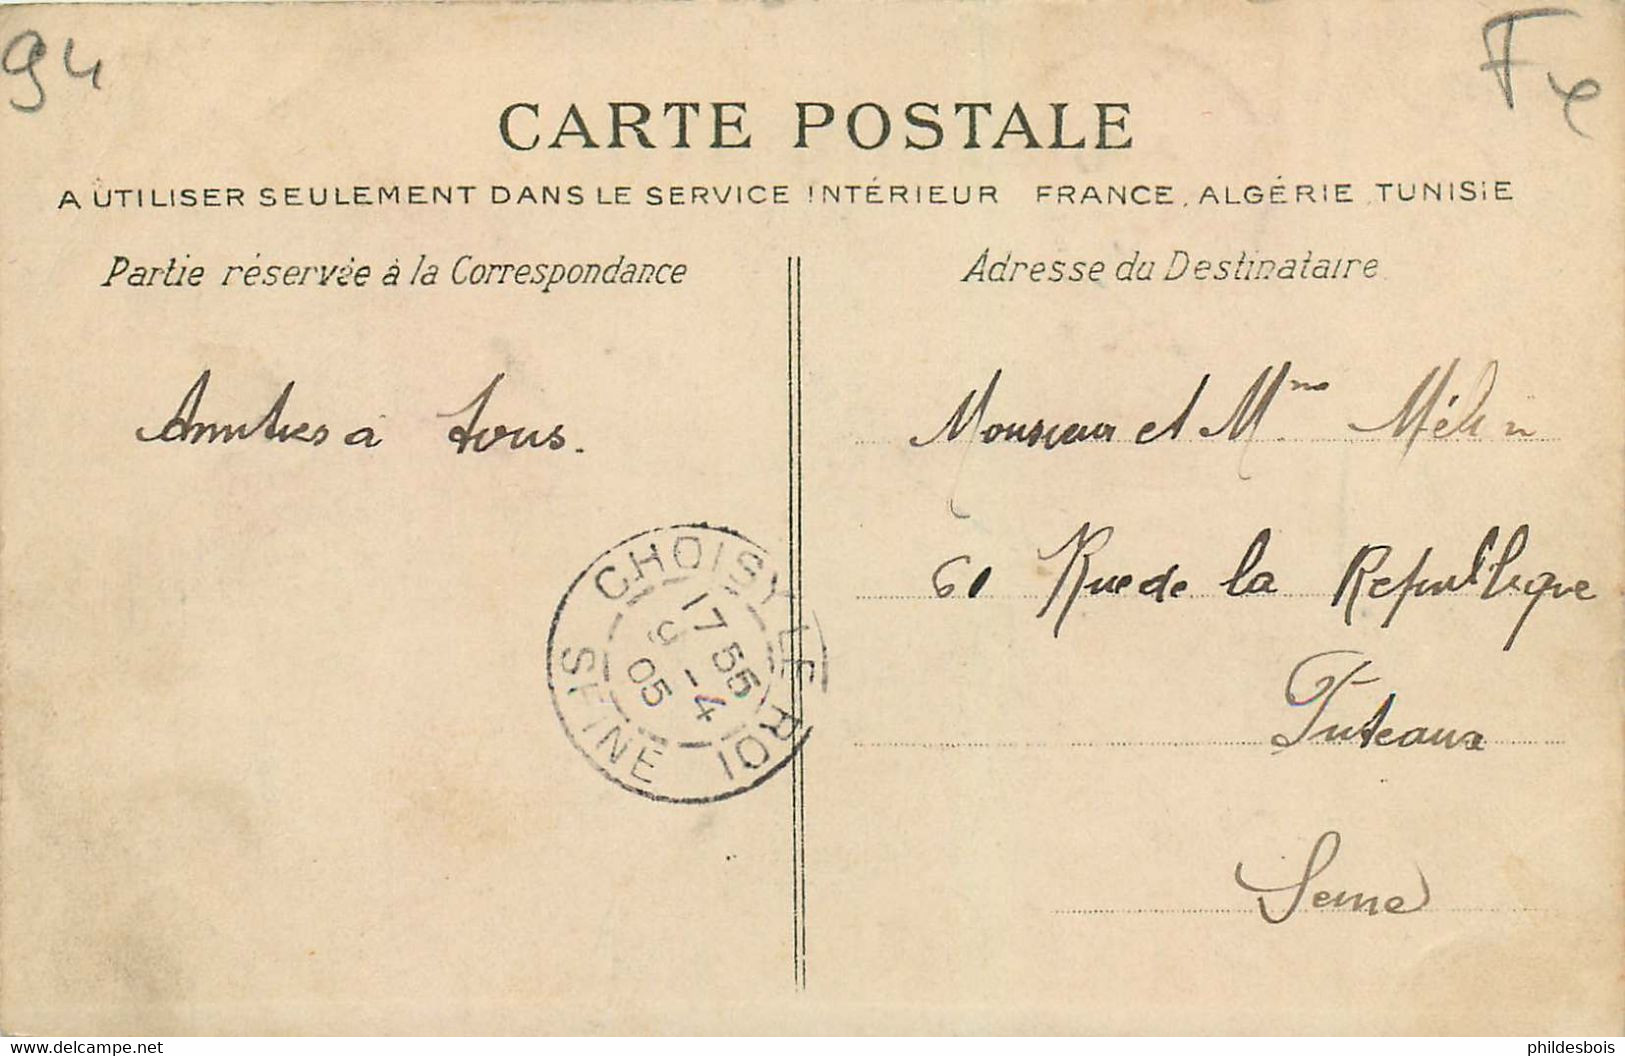 94
CARTE POSTALE
A UTILISER SEULEMENT DANS LE SERVICE INTÉRIEUR FRANCE, ALGÉRIE, TUNISIE
Partie réservée à la Correspondance
Amitiés à tous.
Adresse du Destinataire
Monsieur et Mme Mélin
61 Rue de la République
Puteaux
Seine
CHOISY LE ROI
17 55
9 -4
05
SEINE
www.delcampe.net
phildesbois